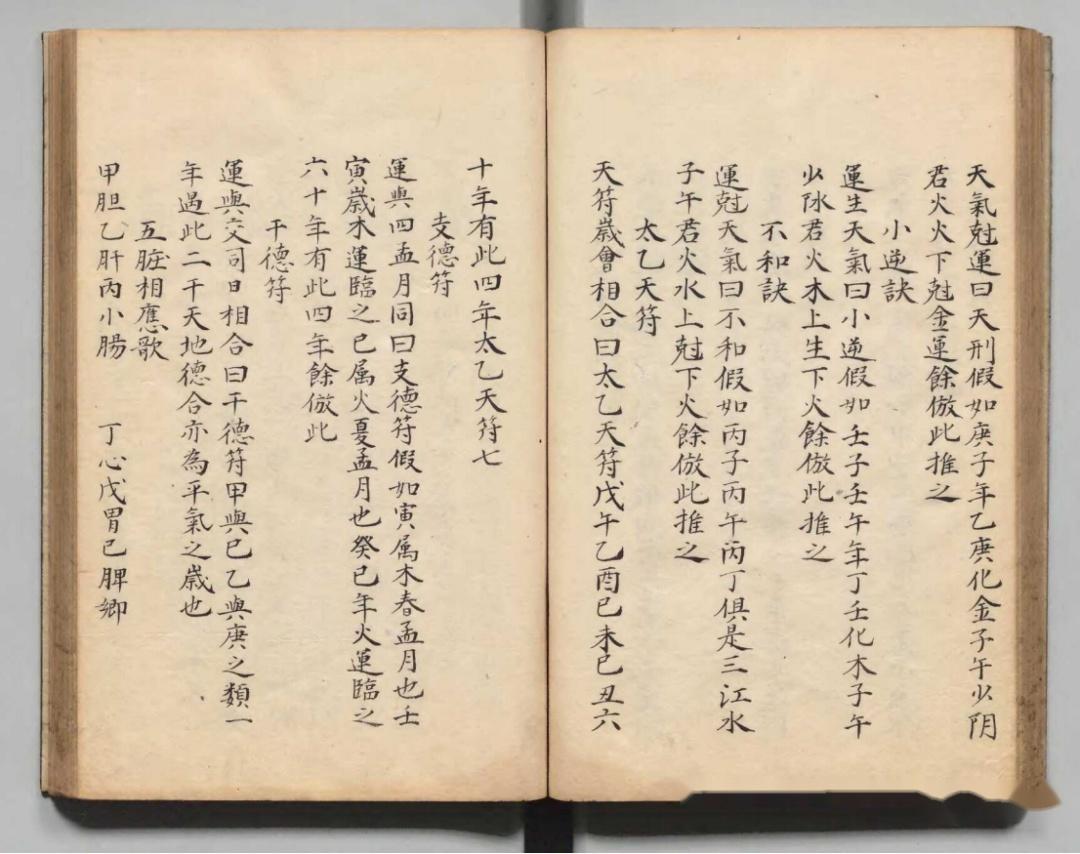 天氣尅運曰天刑假如庚子年乙庚化金子午少阴
君火火下尅金運餘倣此推之
小逆訣
運生天氣曰小逆假如壬子壬午年丁壬化木子午
少阴君火木上生下火餘倣此推之
不和訣
運尅天氣曰不和假如丙子丙午丙丁俱是三江水
子午君火水上尅下火餘倣此推之
太乙天符
天符歲會相合曰太乙天符戊午乙酉已未已丑六
十年有此四年太乙天符七
支德符
運與四孟月同曰支德符假如寅属木春孟月也壬
寅歲木運臨之巳属火夏孟月也癸巳年火運臨之
六十年有此四年餘倣此
干德符
運與交司日相合曰干德符甲與已乙與庚之類一
年過此二干天地德合亦為平氣之歲也
五脏相應歌
甲胆乙肝丙小腸 丁心戊胃已脾鄉